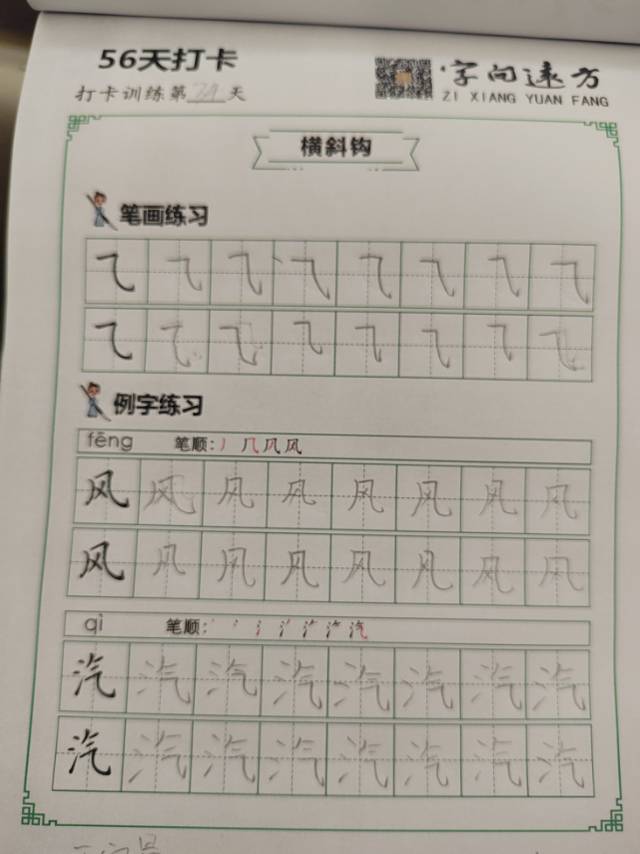 56天打卡
字向远方
打卡训练第 天
ZI XIANG YUAN FANG
横斜钩
笔画练习
⺄ ⺄ ⺄ ⺄ ⺄ ⺄ ⺄ ⺄
⺄ ⺄ ⺄ ⺄ ⺄ ⺄ ⺄ ⺄
例字练习
fēng 笔顺:
风 风 风 风 风 风 风 风
风 风 风 风 风 风 风 风
qì 笔顺:
汽 汽 汽 汽 汽 汽 汽 汽
汽 汽 汽 汽 汽 汽 汽 汽